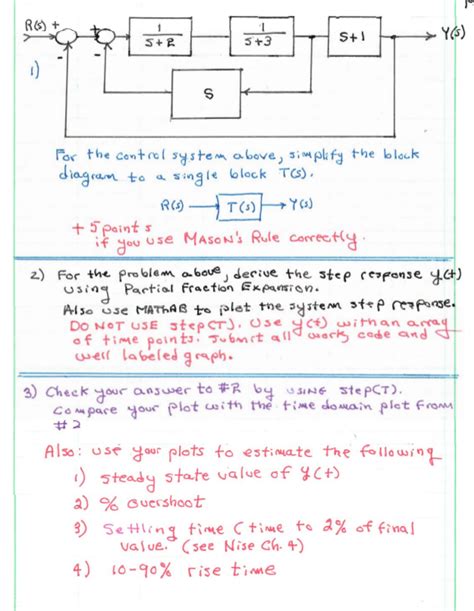 R(s) + + 1/(s+2) 1/(s+3) s+1 Y(s)
- -
1) S
For the control system above, simplify the block
diagram to a single block T(s).
R(s) T(s) Y(s)
+ 5 points
if you use MASON'S Rule correctly.
2) For the problem above, derive the step response y(t)
using Partial Fraction Expansion.
Also use MATHAB to plot the system step response.
DO NOT USE step(T). Use y(t) with an array
of time points. Submit all work code and
well labeled graph.
3) Check your answer to #2 by using step(T).
Compare your plot with the time domain plot from
#2
Also: use your plots to estimate the following
1) steady state value of y(t)
2) % overshoot
3) Settling time (time to 2% of final
value. (see Nise Ch. 4)
4) 10-90% rise time